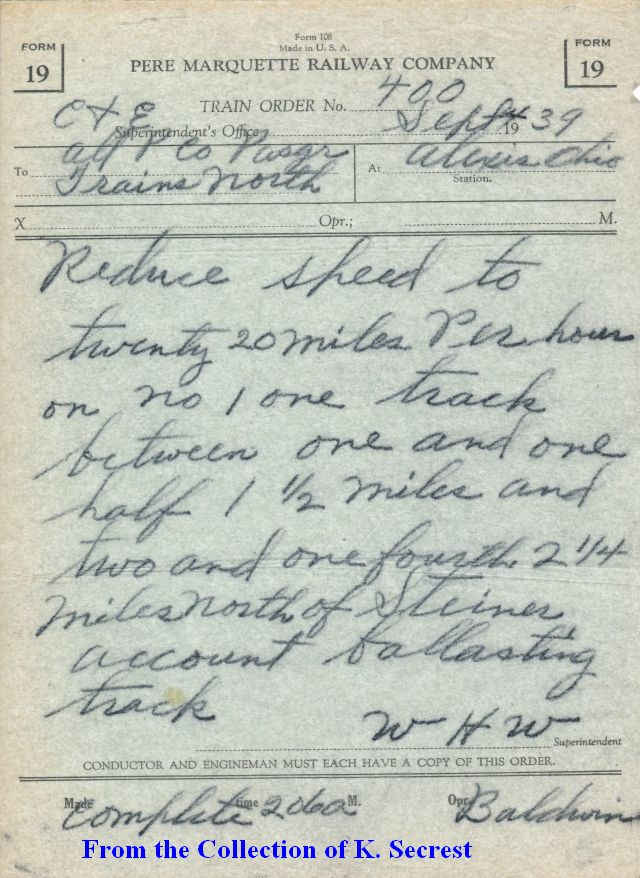 Form 108
Made in U. S. A.
FORM 19
FORM 19
PERE MARQUETTE RAILWAY COMPANY
TRAIN ORDER No. 400
C & E
Superintendent's Office Sept 19 39
To All P Co Pasgr Trains North
At Alexis Ohio
Station.
X Opr.; M.
Reduce speed to
twenty 20 miles Per hour
on no 1 one track
between one and one
half 1 1/2 miles and
two and one fourth 2 1/4
miles north of Steiner
account ballasting
track
W H W
Superintendent
CONDUCTOR AND ENGINEMAN MUST EACH HAVE A COPY OF THIS ORDER.
Made complete time 206a M. Opr. Baldwin
From the Collection of K. Secrest